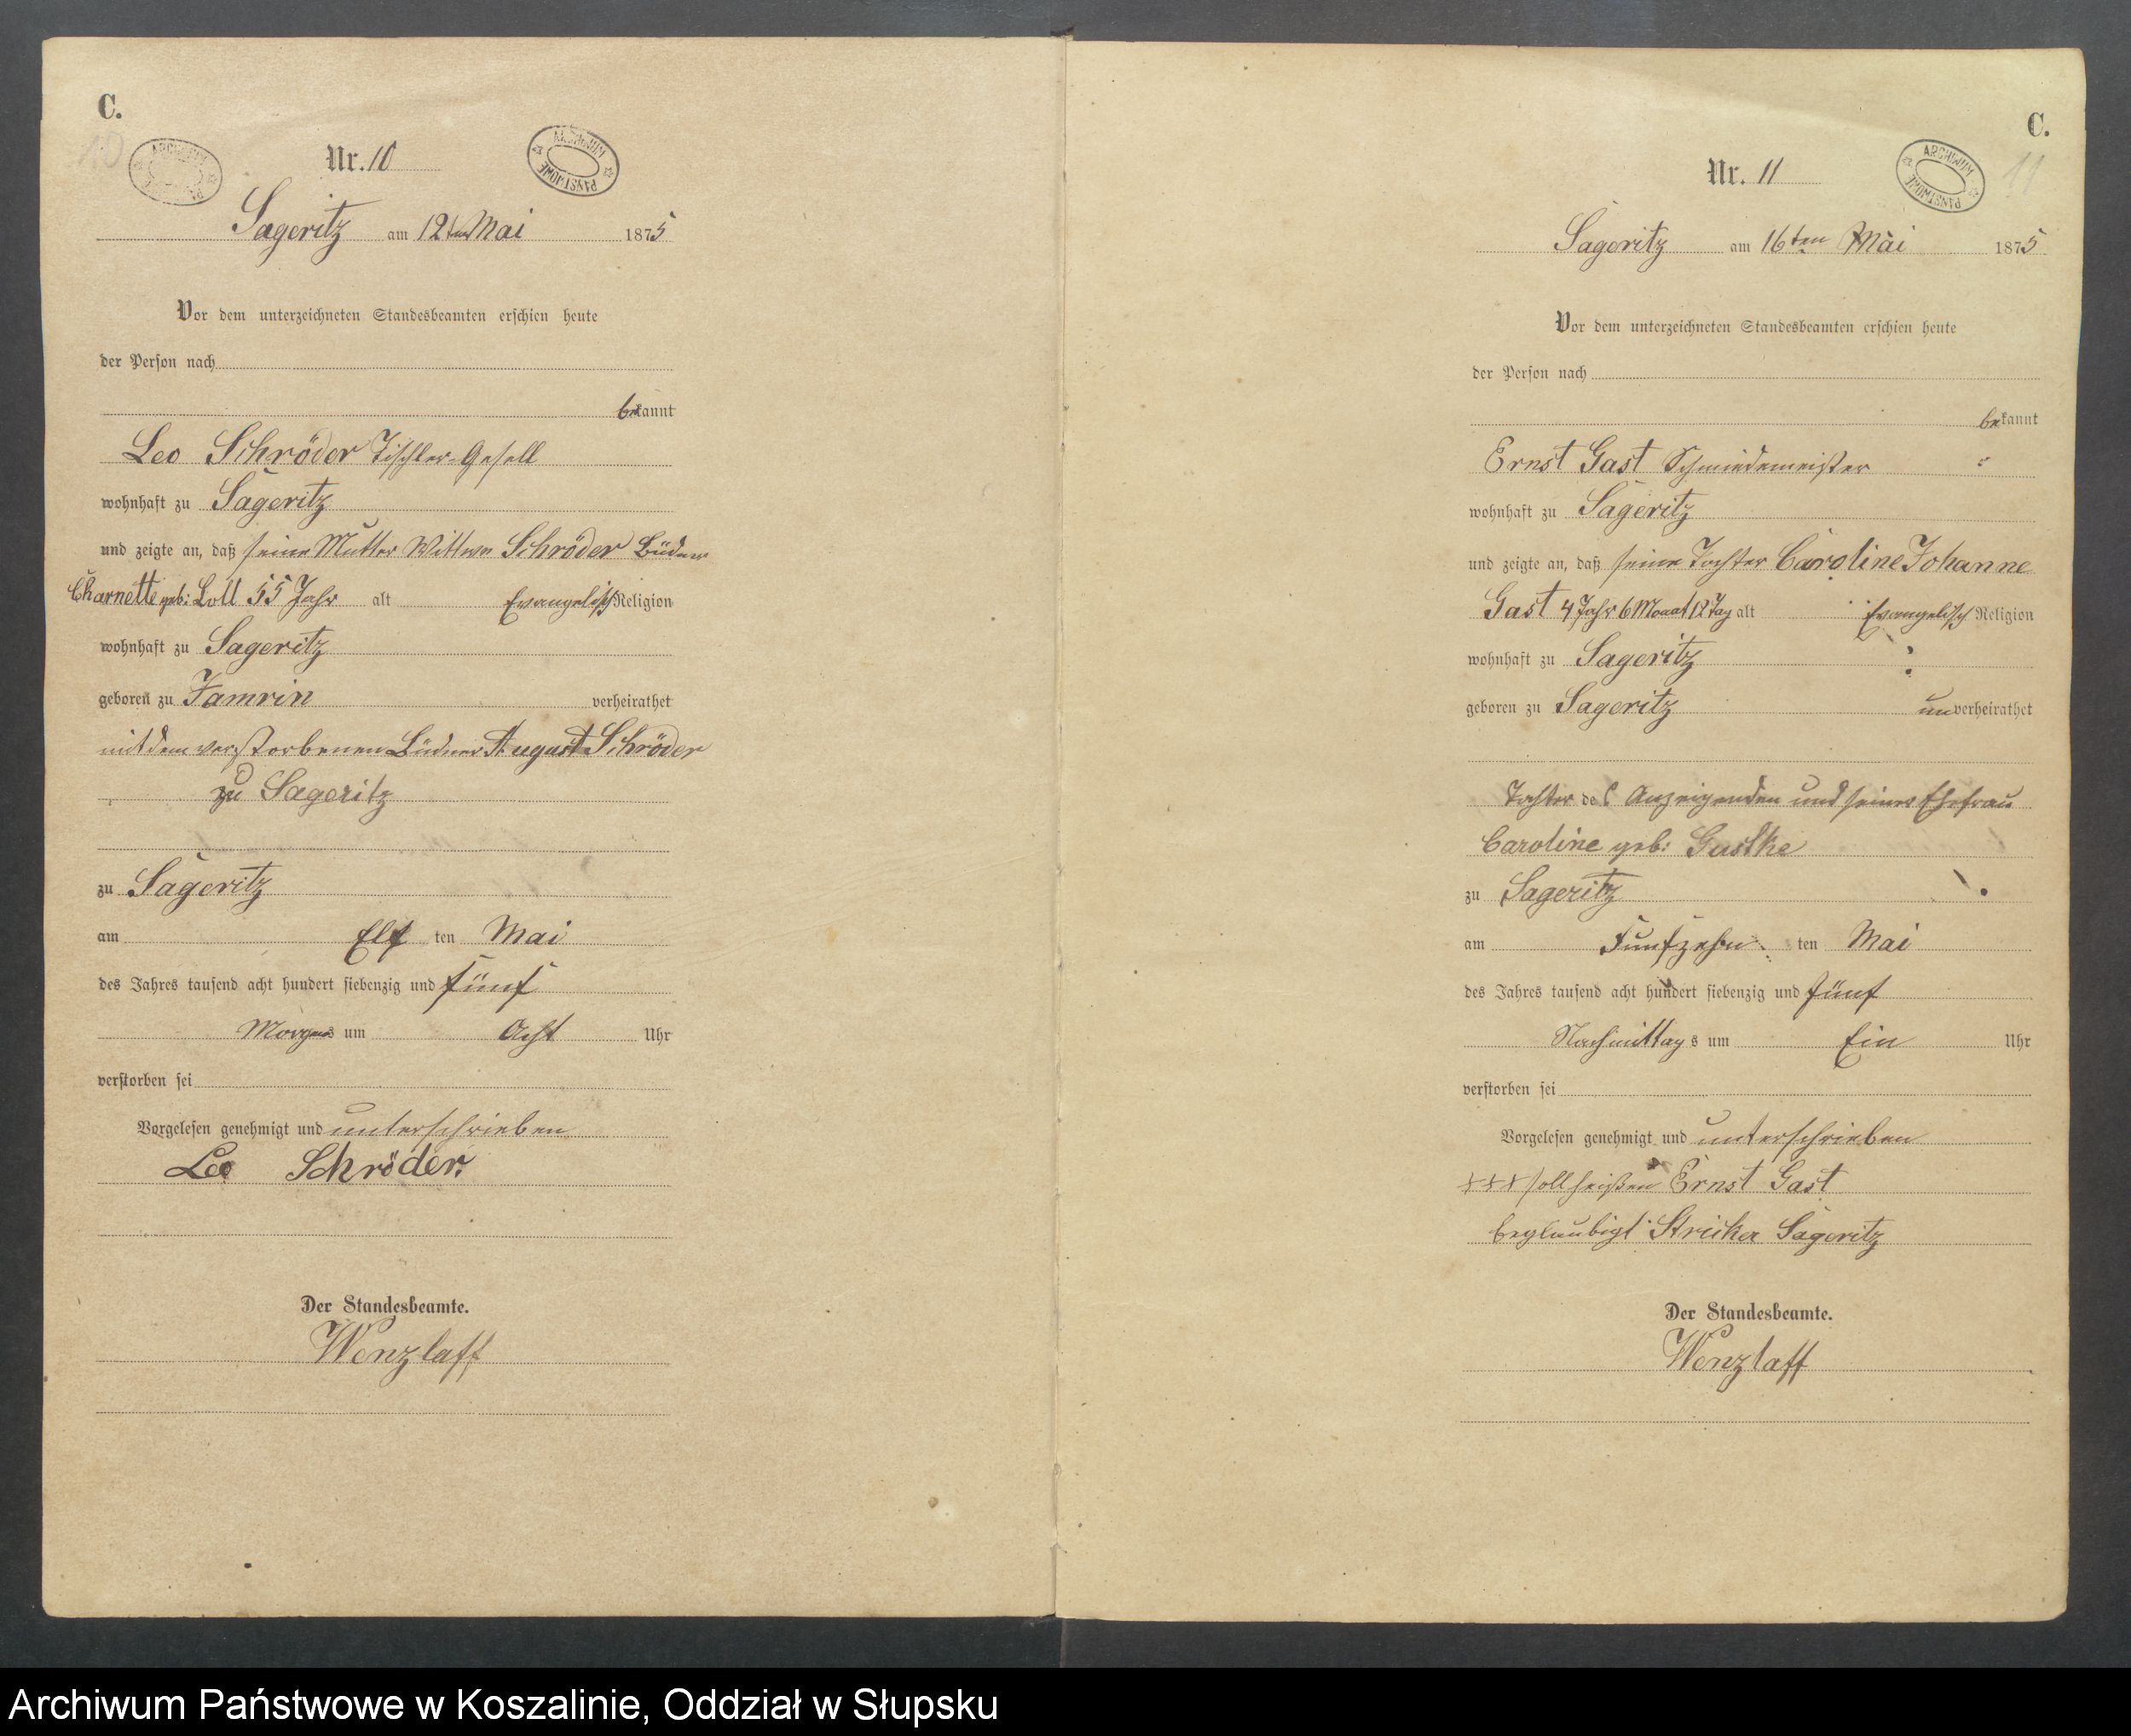 C.
10
ARCHIWUM
ARCHIWUM PAŃSTWOWE
Nr. 10
Sageritz am 12ten Mai 1875
Vor dem unterzeichneten Standesbeamten erschien heute
der Person nach
bekannt
Leo Schröder Tischler-Gesell
wohnhaft zu Sageritz
und zeigte an, daß seine Mutter Wittwe Schröder Büdner
Charnette geb: Loll 55 Jahr alt Evangelisch Religion
wohnhaft zu Sageritz
geboren zu Jamrin verheirathet
mit dem verstorbenen Büdner August Schröder
zu Sageritz
zu Sageritz
am Elf ten Mai
des Jahres tausend acht hundert siebenzig und fünf
Morgens um Acht Uhr
verstorben sei
Vorgelesen genehmigt und unterschrieben
Leo Schröder.
Der Standesbeamte.
Wenzlaff
C.
11
ARCHIWUM PAŃSTWOWE
Nr. 11
Sageritz am 16ten Mai 1875
Vor dem unterzeichneten Standesbeamten erschien heute
der Person nach
bekannt
Ernst Gast Schmiedemeister
wohnhaft zu Sageritz
und zeigte an, daß seine Tochter Caroline Johanne
Gast 4 Jahr 6 Monat 12 Tag alt Evangelisch Religion
wohnhaft zu Sageritz
geboren zu Sageritz unverheirathet
Tochter des Anzeigenden und seiner Ehefrau
Caroline geb: Gustke
zu Sageritz
am Funfzehn ten Mai
des Jahres tausend acht hundert siebenzig und fünf
Nachmittags um Ein Uhr
verstorben sei
Vorgelesen genehmigt und unterschrieben
+++ soll heißen Ernst Gast
beglaubigt Sageritz
Der Standesbeamte.
Wenzlaff
Archiwum Państwowe w Koszalinie, Oddział w Słupsku